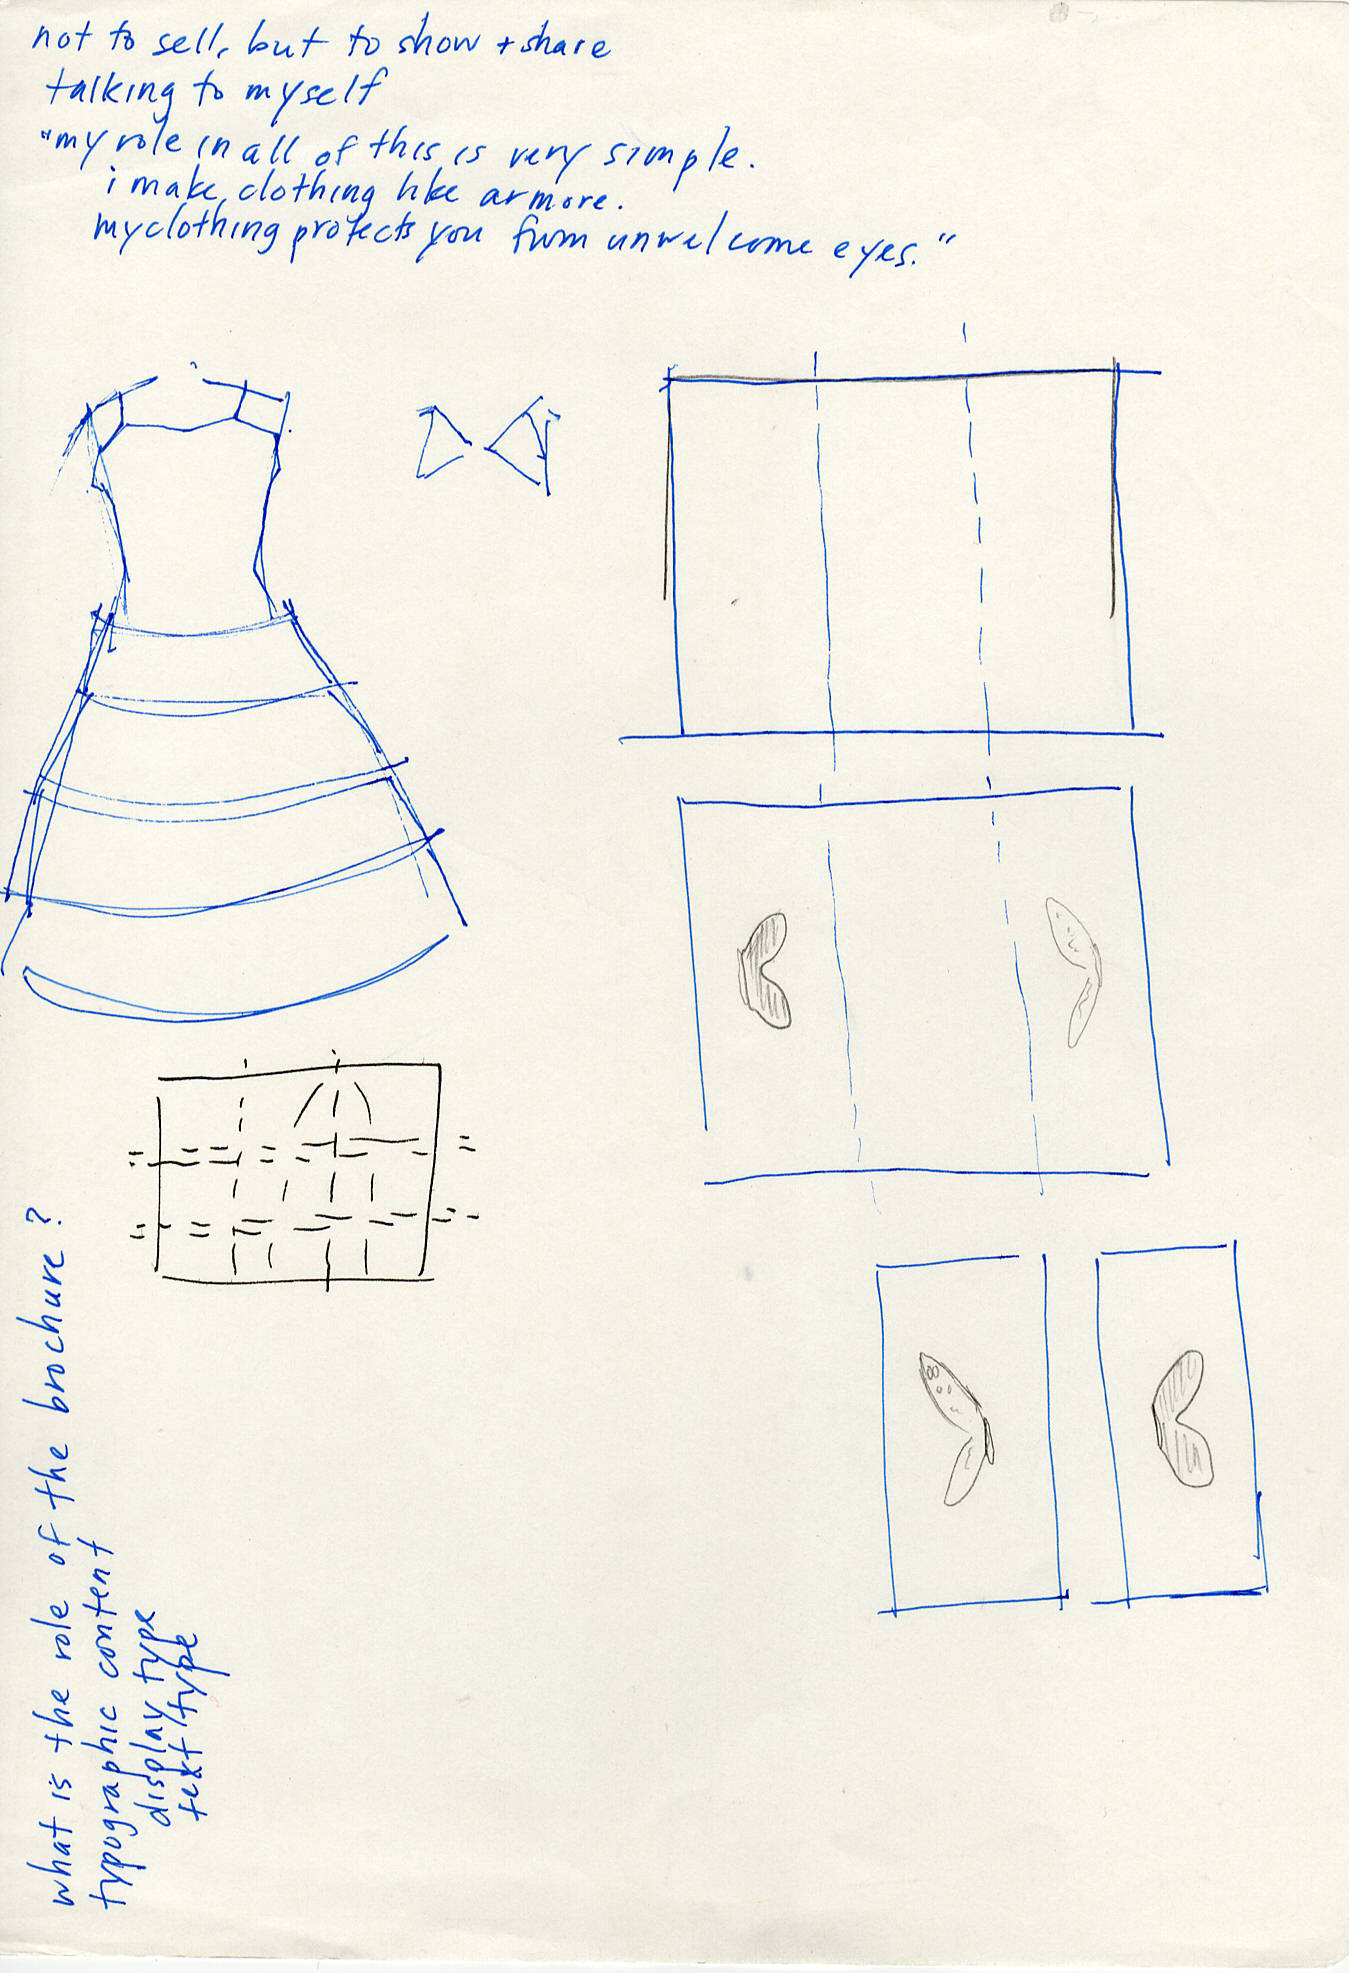 not to sell, but to show + share
talking to myself
"my role in all of this is very simple.
i make clothing like armore.
my clothing protects you from unwelcome eyes."
what is the role of the brochure?
typographic content
display type
text/type